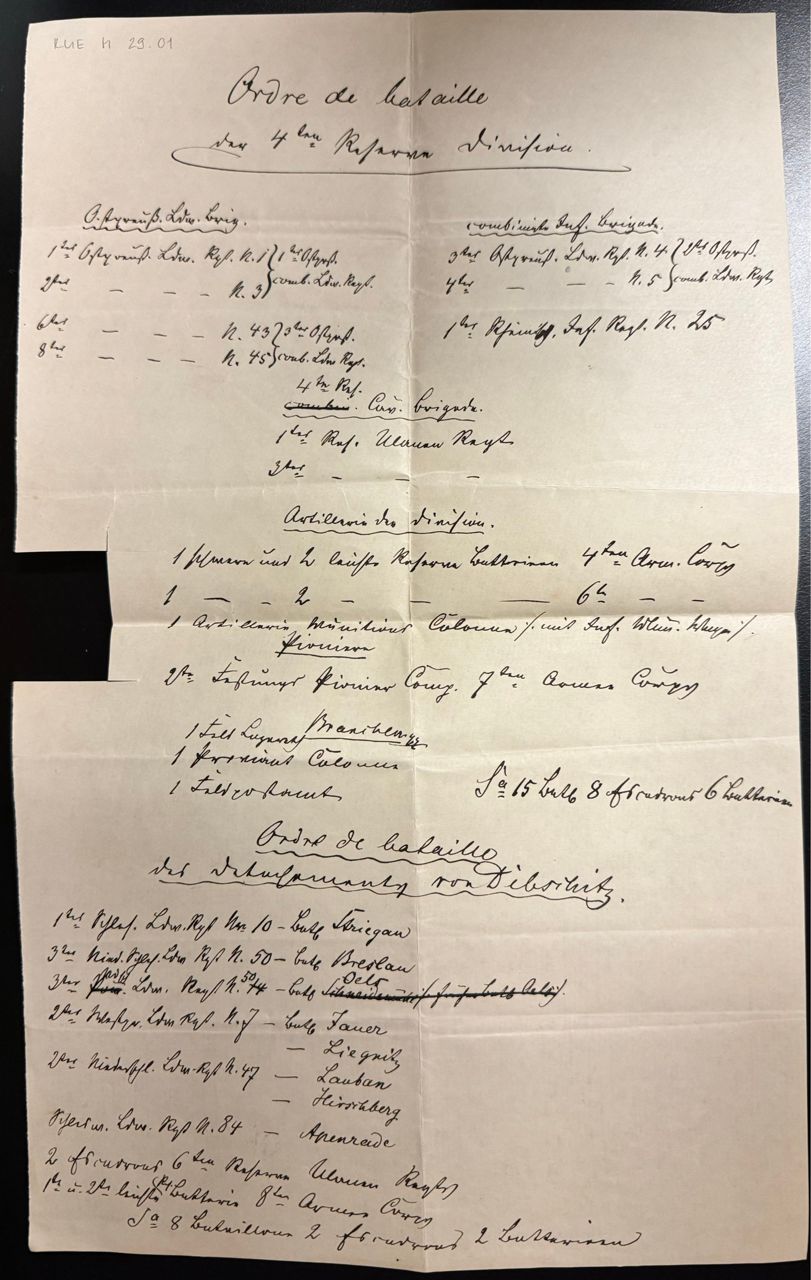 RUE M 29.01
Ordre de bataille
der 4ten Reserve Division.
Ostpreuß. Ldw. Brig.
1tes Ostpreuß. Ldw. Rgt. N. 1 } 1tes Ostprß.
2tes — — — N. 3 } comb. Ldw. Regt.
6tes — — — N. 43 } 3tes Ostprß.
8tes — — — N. 45 } comb. Ldw Rgt.
combinirte Inf. Brigade.
3tes Ostpreuß. Ldw. Rgt. N. 4 { 2tes Ostprß.
4tes — — — N. 5 } comb. Ldw. Rgt
1tes Rheinisch. Inf. Regt. N. 25
4te Res.
combin. Cav. Brigade.
1tes Res. Ulanen Regt
3tes — — —
Artillerie der Division.
1 schwere und 2 leichte Reserve Batterieen 4ten Arm. Corps
1 — - 2 — — — 6t — —
1 Artillerie Munitions Colonne /. mit Inf. Mun. Wagen /.
Pioniere
2te Festungs Pionier Comp. 7ten Armee Corps
Branchen
1 Feld Lazareth
1 Proviant Colonne
1 Feldpostamt
Sa 15 Batl 8 Escadrons 6 Batterieen
Ordre de bataille
des Detachements von Debschitz.
1tes Schles. Ldw. Rgt Nr. 10 – Batl Striegau
3tes Nied. Schles. Ldw Rgt N. 50 – Batl Breslau
50 Oels
3tes Pom. Ldw. Regt N. 14 – Batl Schneidemühl /. früher Batl Oels /.
2tes Westpr. Ldw Rgt. N. 7 – Batl Jauer
— Liegnitz
2tes Niederschl. Ldw-Rgt N. 47 — Lauban
— Hirschberg
Schlesw. Ldw. Rgt N. 84 — Apenrade
2 Escadrons 6ten Reserve Ulanen Regts
1te u. 2te leichte Res Batterie 8ten Armee Corps
Sa 8 Bataillone 2 Escadrons 2 Batterieen